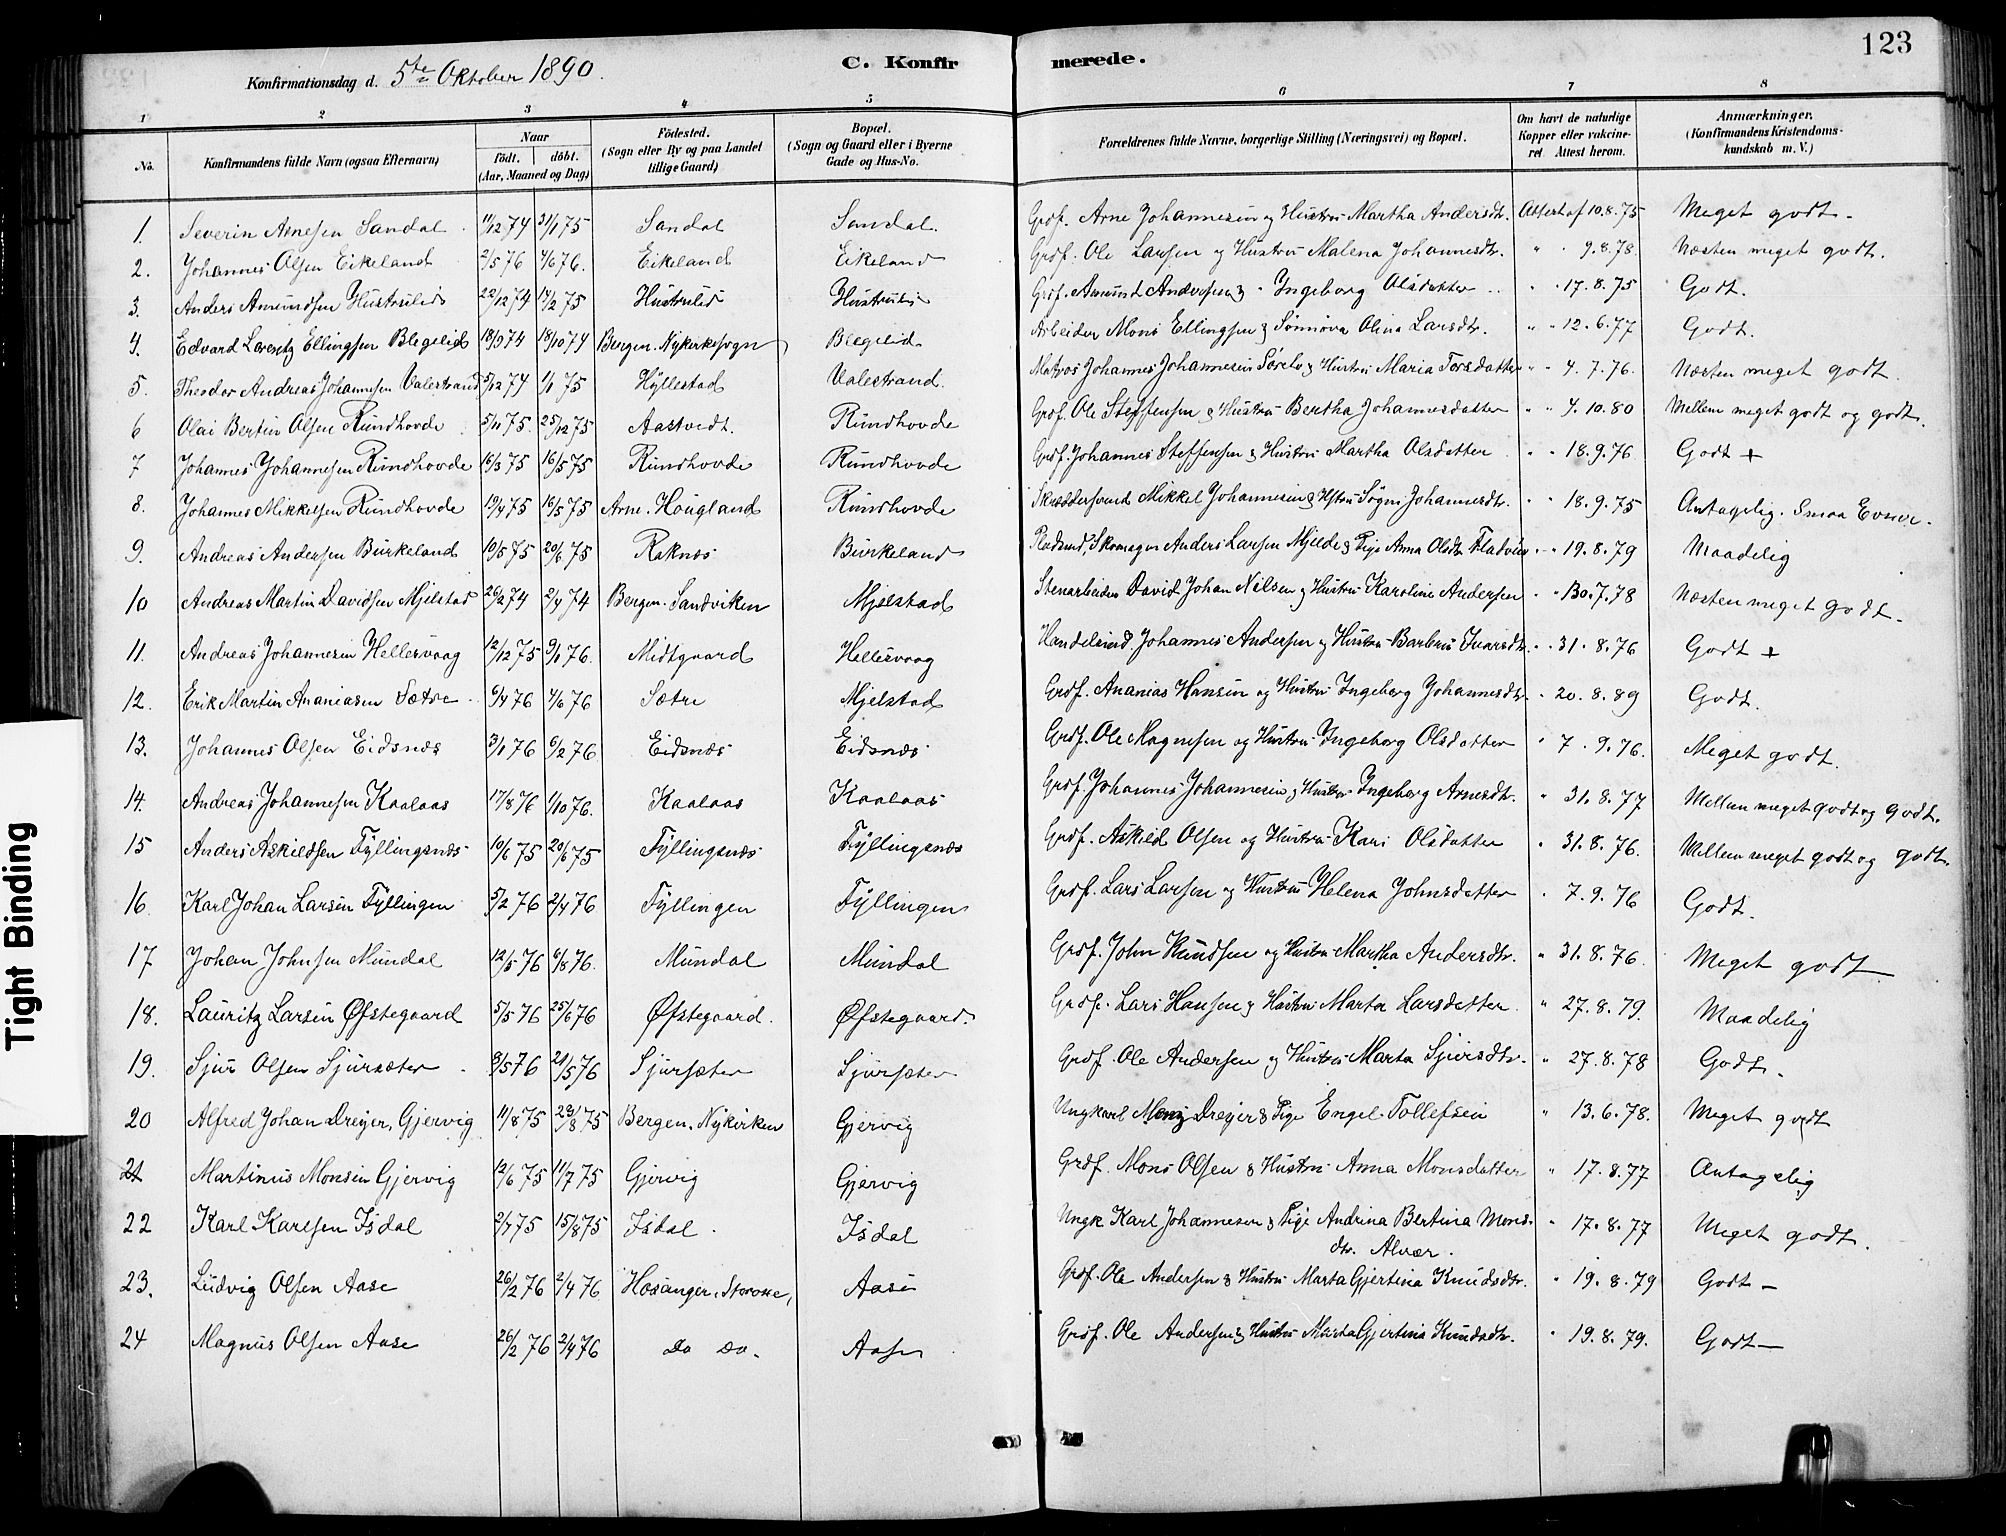 123
Konfirmationsdag d. 5te Oktober 1890.
C. Konfirmerede.
1 2 3 4 5 6 7 8
No. Konfirmandens fulde Navn (ogsaa Efternavn) Naar født. døbt. (Aar, Maaned og Dag) Fødested. (Sogn eller By og paa Landet tillige Gaard) Bopæl. (Sogn og Gaard eller i Byerne Gade og Hus-No. Forældrenes fulde Navne, borgerlige Stilling (Næringsvei) og Bopæl. Om havt de naturlige Kopper eller vakcineret Attest herom. Anmærkninger. (Konfirmandens Kristendomskundskab m. V.)
1. Severin Arnesen Sandal 11/12 74 31/1 75 Sandal Sandal. Grdf. Arne Johannesen og Hustru Martha Andersdtr. Attest af 10.8.75 Meget godt.
2. Johannes Olsen Eikeland 2/5 76 4/6 76. Eikeland Eikeland Grdf. Ole Larsen og Hustru Malena Johannesdtr. " " 9.8.78. Næsten meget godt.
3. Anders Amundsen Hustrulid 22/12 74 14/2 75 Hustrulid Hustrulid Grdf. Amund Andersen & " Ingeborg Olsdatter " " 17.8.75 Godt.
4. Edvard Lorentz Ellingsen Blegelid 18/9 74 18/10 74 Bergen. Nykirkesogn Blegelid Arbeider Mons Ellingsen & Sønnøva Olina Larsdtr. " " 12.6.77 Godt.
5. Theodor Andreas Johannesen Valestrand 5/12 74 1/1 75 Hyllestad Valestrand. Matros Johannes Johannesen Sørebø & Hustru Maria Torsdatter " " 4.7.76. Næsten meget godt.
6 Olai Bertin Olsen Rundhovde 5/11 75. 25/12 75 Aastvedt. Rundhovde Grdf. Ole Steffensen & Hustru Bertha Johannesdatter " " 4.10.80 Mellem meget godt og godt.
7 Johannes Johannesen Rundhovde 16/3 75 16/5 75 Rundhovde Rundhovde Grdf. Johannes Steffensen & Hustru Martha Olsdatter " " 18.9.76. Godt +
8. Johannes Mikkelsen Rundhovde 19/4 75 16/5 75 Arne. Hougland Rundhovde Skræddersvend Mikkel Johannesen & Hstru Søgni Johannesdtr. " " 18.9.75 Antagelig. Smaa Evner.
9. Andreas Andersen Burkeland 10/5 75 20/6 75 Raknæs Burkeland Pladsmd, Skomager Anders Larsen Mjelde & Pige Anna Olsdtr " " 19.8.79 Maadelig
10 Andreas Martin Davidsen Mjelstad 26/2 74 2/4 74 Bergen. Sandviken Mjelstad Stenarbeider David Johan Nilsen & Hustru Karoline Andersen " " 30.7.78 Næsten meget godt.
11. Andreas Johannesen Hellesvaag 12/12 75 9/1 76. Midtgaard Hellesvaag Handelsmd. Johannes Andersen og Hustru Barbru Ivarsdtr. " " 31.8.76 Godt +
12. Erik Martin Ananiasen Sætre 6/4 76 4/6 76 Sætre Mjelstad Grdf. Ananias Hansen og Hustru Ingeborg Johannesdtr " 20.8.89 Godt.
13. Johannes Olsen Eidsnæs 3/1 76 6/2 76. Eidsnæs Eidsnæs Grdf. Ole Magnesen og Hustru Ingeborg Olsdatter " 7.9.76. Meget godt.
14. Andreas Johannesen Kaalaas 17/8 76 1/10 76. Kaalaas Kaalaas Grdf. Johannes Johannesen & Hustru Ingeborg Arnesdtr. " 31.8.77 Mellem meget godt og Godt.
15 Anders Askildsen Fyllingsnæs 10/6 75 20/6 75 Fyllingsnæs Fyllingsnæs Grdf. Askild Olsen og Hustru Kari Olsdatter " 31.8.76. Mellem meget godt og godt.
16. Karl Johan Larsen Fyllingen 5/2 76 2/4 76 Fyllingen Fyllingen Grdf. Lars Larsen og Hustru Helena Johnsdatter " 7.9.76 Godt.
17 Johan Johnsen Mundal 12/5 76 6/8 76. Mundal Mundal Grdf. John Knudsen og Hustru Martha Andersdtr. " 31.8.76. Meget godt
18. Lauritz Larsen Øfstegaard 5/5 76 25/6 76 Øfstegaard. Øfstegaard. Grdf. Lars Hansen & Hustru Marta Larsdatter " 27.8.79. Maadelig
19. Sjur Olsen Sjursæter 8/5 76 21/5 76 Sjursæter Sjursæter Grdf. Ole Andersen og Hustru Marta Sjursdtr. " 27.8.78 Godt.
20 Alfred Johan Dreyer, Gjervig 11/8 75 23/8 75 Bergen. Nykirken Gjervig Ungkarl Menz Dreyer & Pige Engel Tollefsen " 13.6.78. Meget godt
21 Martinus Monsen Gjervig 12/6 75 11/7 75 Gjervig Gjervig Grdf. Mons Olsen & Hustru Anna Monsdatter " 17.8.77 Antagelig
22 Karl Karlsen Isdal 2/7 75 15/8 75 Isdal. Isdal Ungk Karl Johannesen & Pige Andrina Bertina Monsdtr. Alvær. " 17.8.77 Meget godt.
23. Ludvig Olsen Aase 26/2 76 2/4 76. Hosanger. Aase Grdf. Ole Andersen & Hustru Marta Gjertina Knudsdtr. " 19.8.79 Godt
24 Magnus Olsen Aase 26/2 76 2/4 76 Do Do. Aase Grdf. Ole Andersen & Hustru Marta Gjertina Knudsdtr. " 19.8.79. Godt
Tight Binding